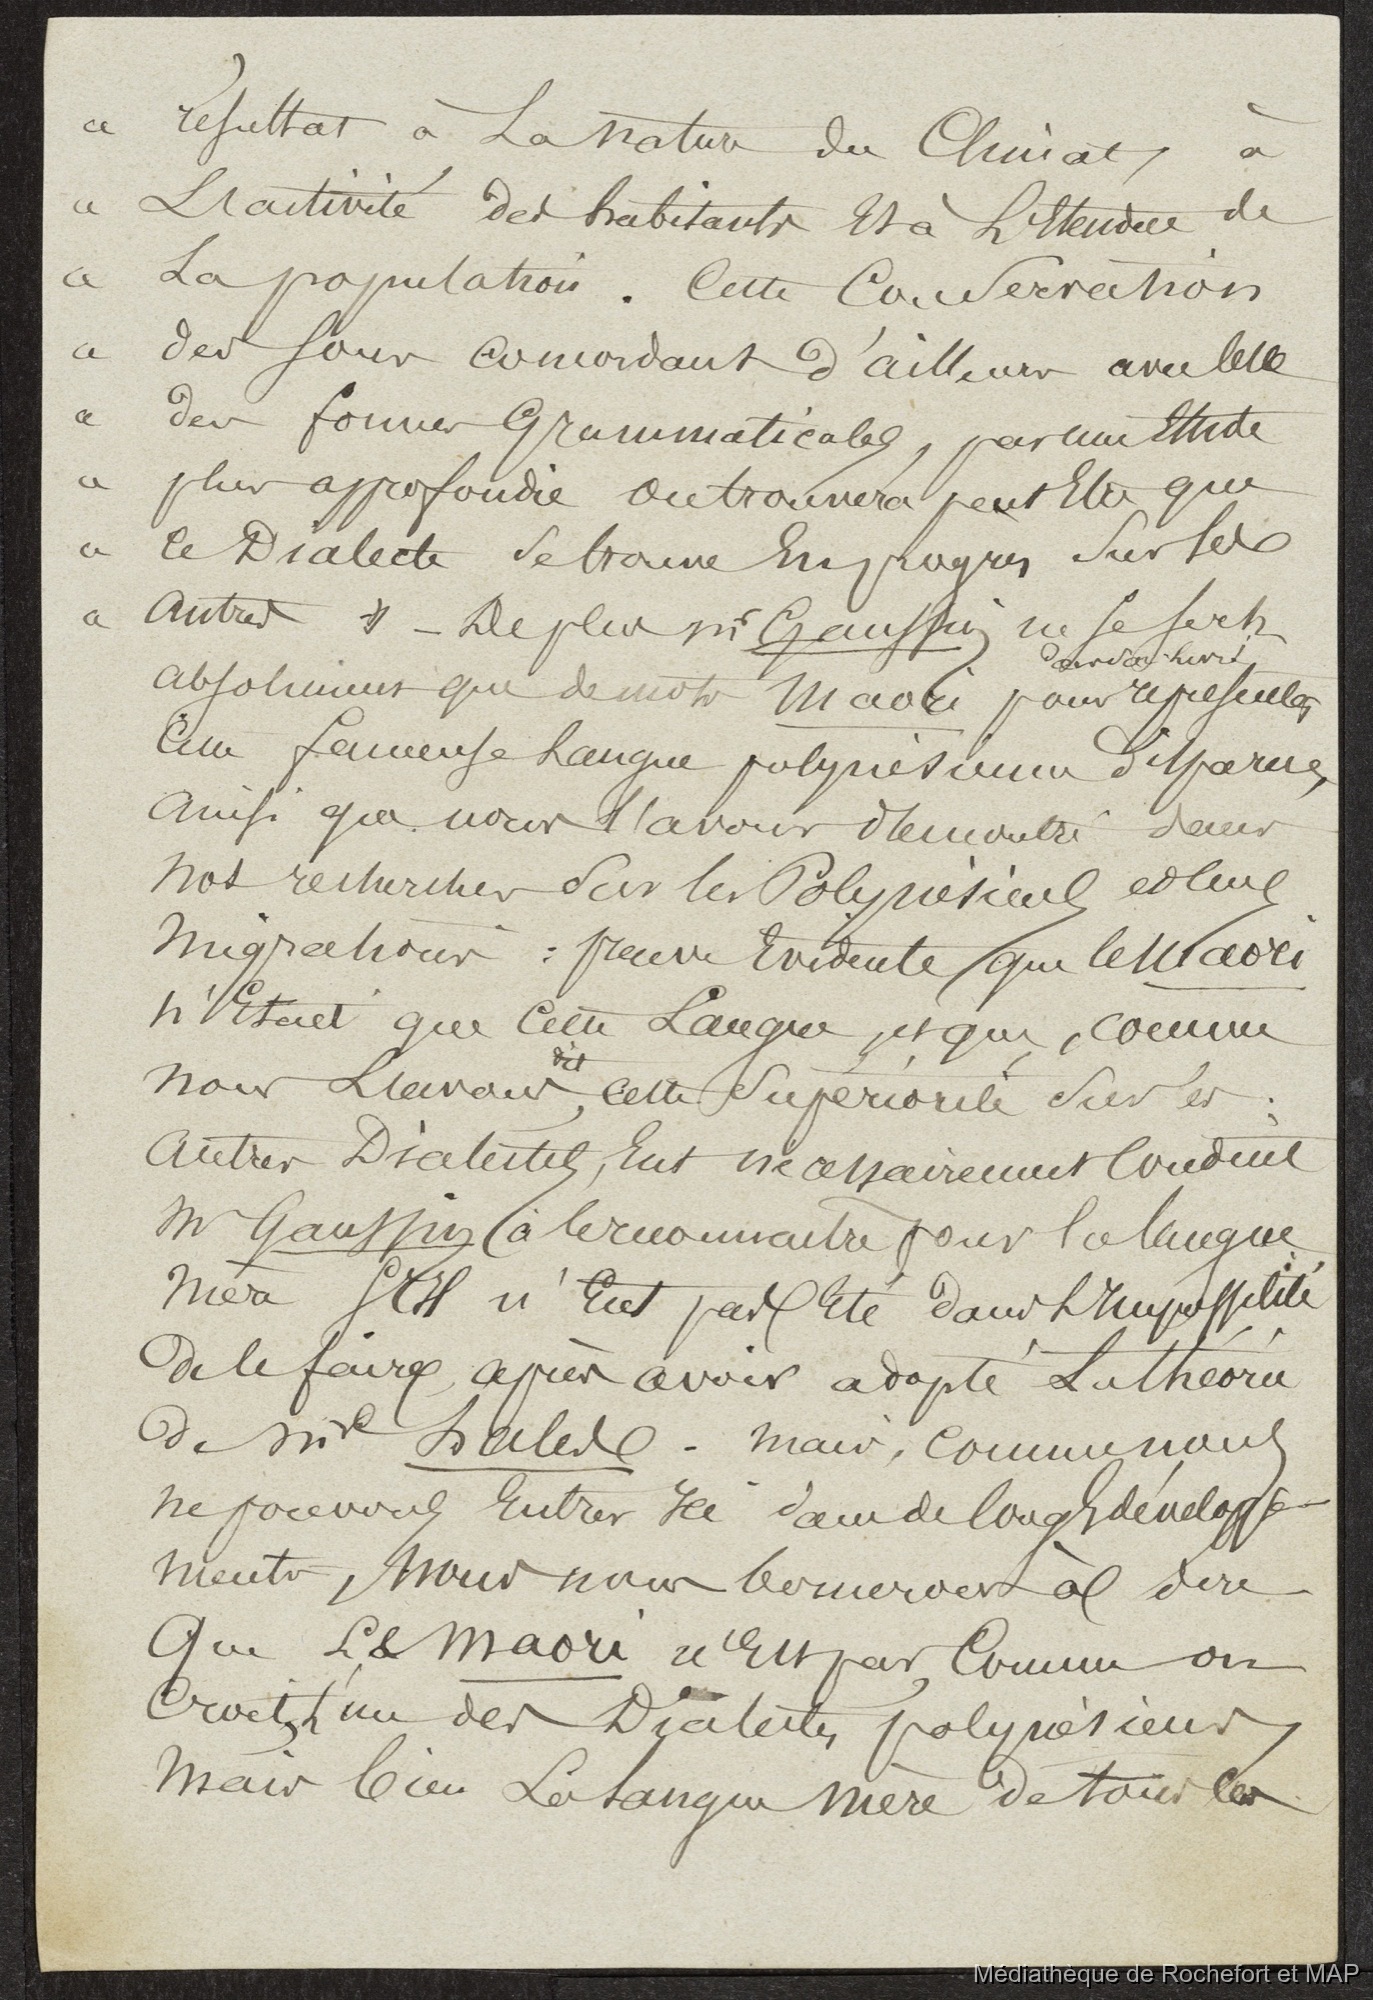 « résultat à la nature du Climat, à
« L'activité des habitants Et à L'Etendue de
« La population. Cette Conservation
« des sons concordant d'ailleurs avec celle
« des formes Grammaticales, par une Etude
« plus approfondie on trouvera peut Etre que
« ce Dialecte se trouve En progrès sur les
« autres » – De plus Mr Gaussin ne se sert
dans son livre
absolument que de mots Maori pour représenter
cette fameuse Langue polynésienne disparue,
ainsi que nous l'avons démontré dans
nos recherches sur les Polynésiens et leurs
migrations : preuve Evidente que le Maori
n'Etait que cette Langue, et que, comme
dit
nous L'avons, cette Supériorité sur les
autres Dialectes, Eut nécessairement Conduit
Mr Gaussin à le reconnaitre pour la langue
mère s'Il n'Eut pas Eté dans L'Impossibilité
de le faire, après avoir adopté La théorie
de Mr Hales – mais, comme nous
ne pouvons Entrer Ici dans de longs développe-
ments, nous nous bornerons à dire
Que Le Maori n'Est pas, Comme on
Croit, l'un des Dialectes polynésiens,
mais bien La Langue mère de tous les
Médiathèque de Rochefort et MAP